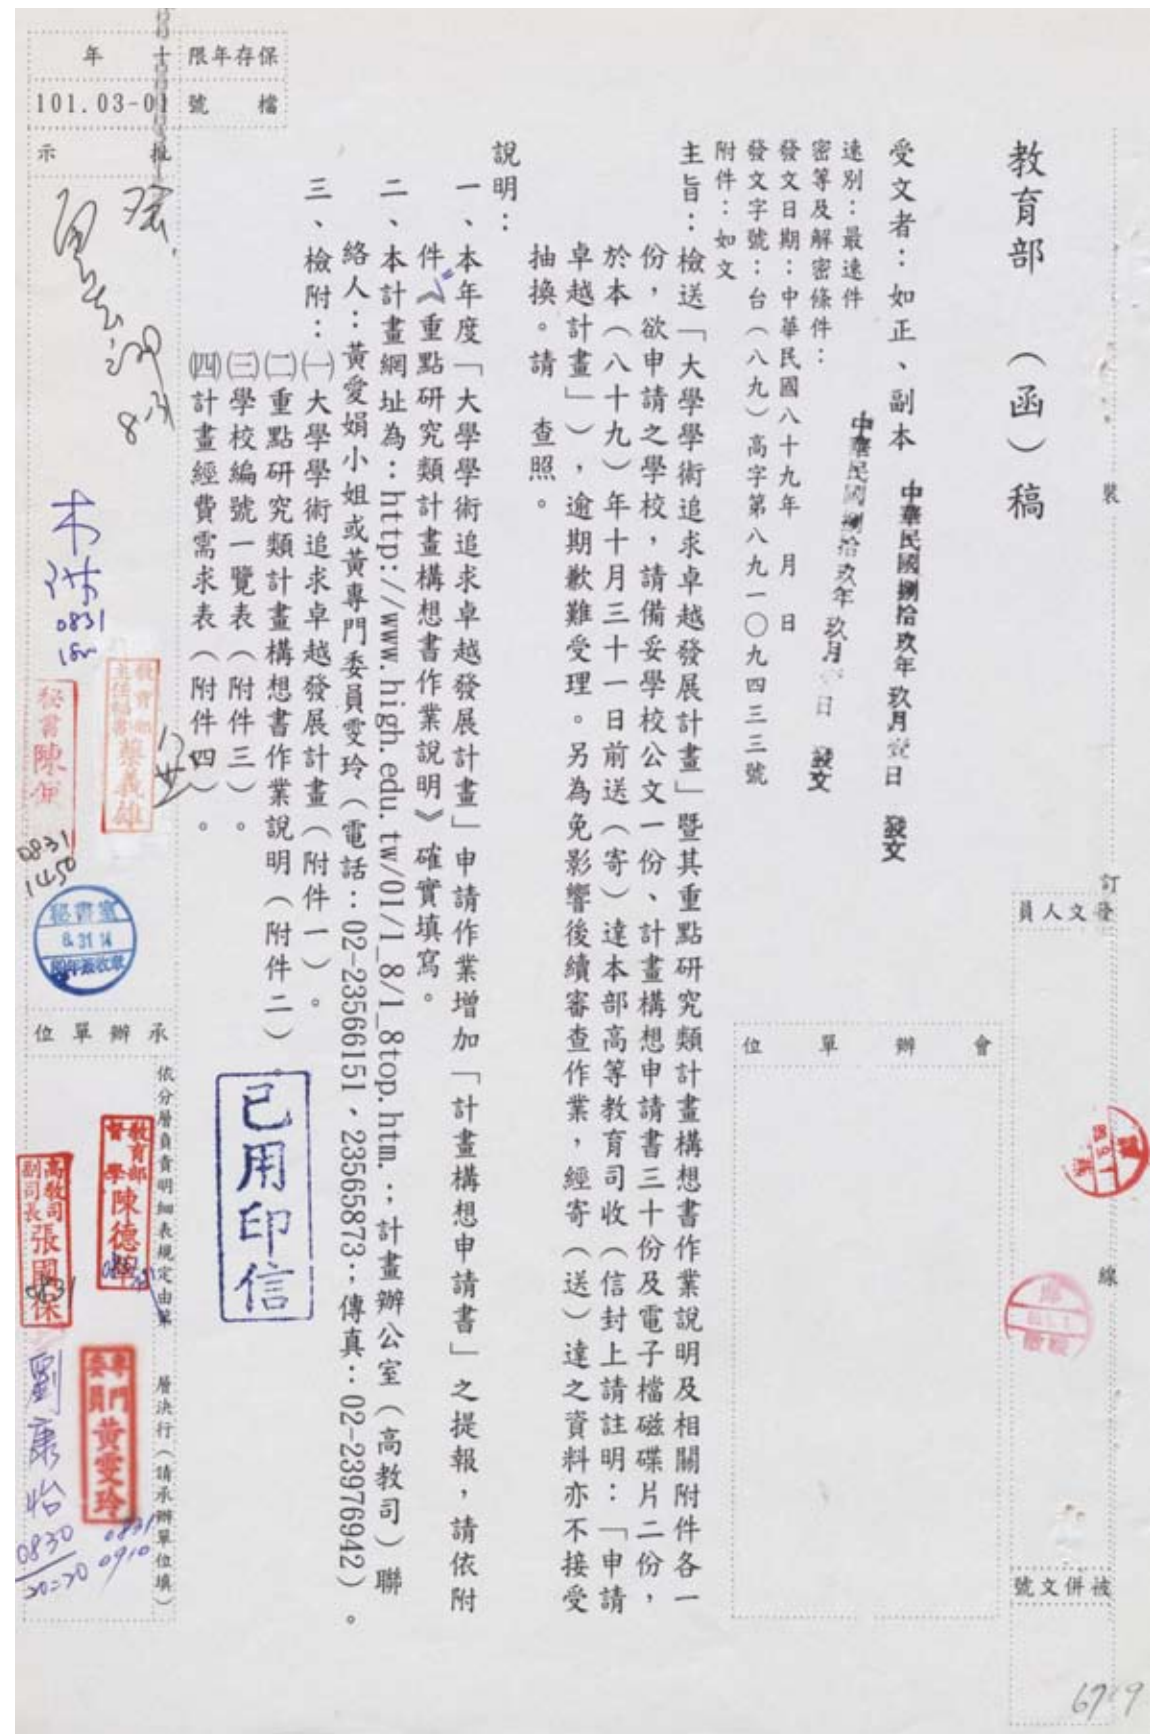 教育部 (函) 稿
受文者：如正、副本
中華民國捌拾玖年玖月壹日 發文
速別：最速件
密等及解密條件：
中華民國捌拾玖年玖月 日 發文
發文日期：中華民國八十九年 月 日
發文字號：台（八九）高字第八九一〇九四三三號
附件：如文
主旨：檢送「大學學術追求卓越發展計畫」暨其重點研究類計畫構想書作業說明及相關附件各一
份，欲申請之學校，請備妥學校公文一份、計畫構想申請書三十份及電子檔磁碟片二份，
於本（八十九）年十月三十一日前送（寄）達本部高等教育司收（信封上請註明：「申請
卓越計畫」），逾期歉難受理。另為免影響後續審查作業，經寄（送）達之資料亦不接受
抽換。請 查照。
說明：
一、本年度「大學學術追求卓越發展計畫」申請作業增加「計畫構想申請書」之提報，請依附
件《重點研究類計畫構想書作業說明》確實填寫。
二、本計畫網址為：http://www.high.edu.tw/01/1_8/1_8top.htm.；計畫辦公室（高教司）聯
絡人：黃愛娟小姐或黃專門委員雯玲（電話：02-23566151、23565873；傳真：02-23976942）。
三、檢附：㈠大學學術追求卓越發展計畫（附件一）。
㈡重點研究類計畫構想書作業說明（附件二）。
㈢學校編號一覽表（附件三）。
㈣計畫經費需求表（附件四）。
已用印信
保存年限 十 年
檔號 101.03-01
批示
8/31
0831
秘書陳
0831
1450
教育部主任秘書蔡義雄
秘書室
8.31 14
承辦單位
依分層負責明細表規定由第 層決行（請承辦單位填）
教育部督學陳德華
高教司副司長張國保
0831
專門委員黃雯玲
0831
0910
劉康怡
0830
20:20
會辦單位
裝
訂
線
發文人員
被併文號